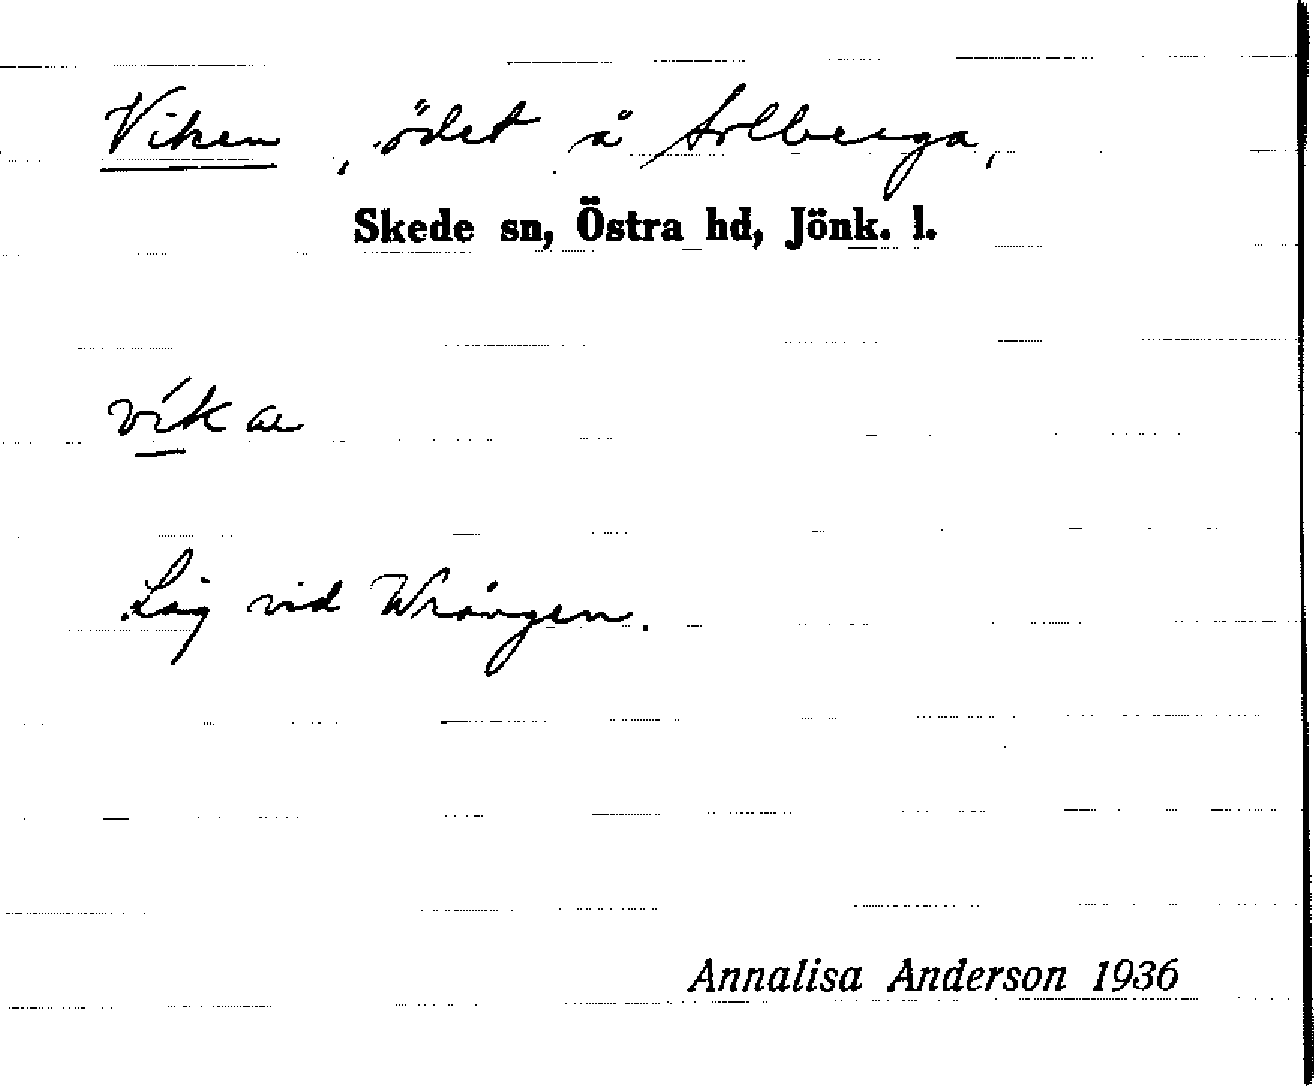 Viken, ödet å Solberga,
Skede sn, Östra hd, Jönk. l.
vi´k
Låg vid Wrången.
Annalisa Anderson 1936